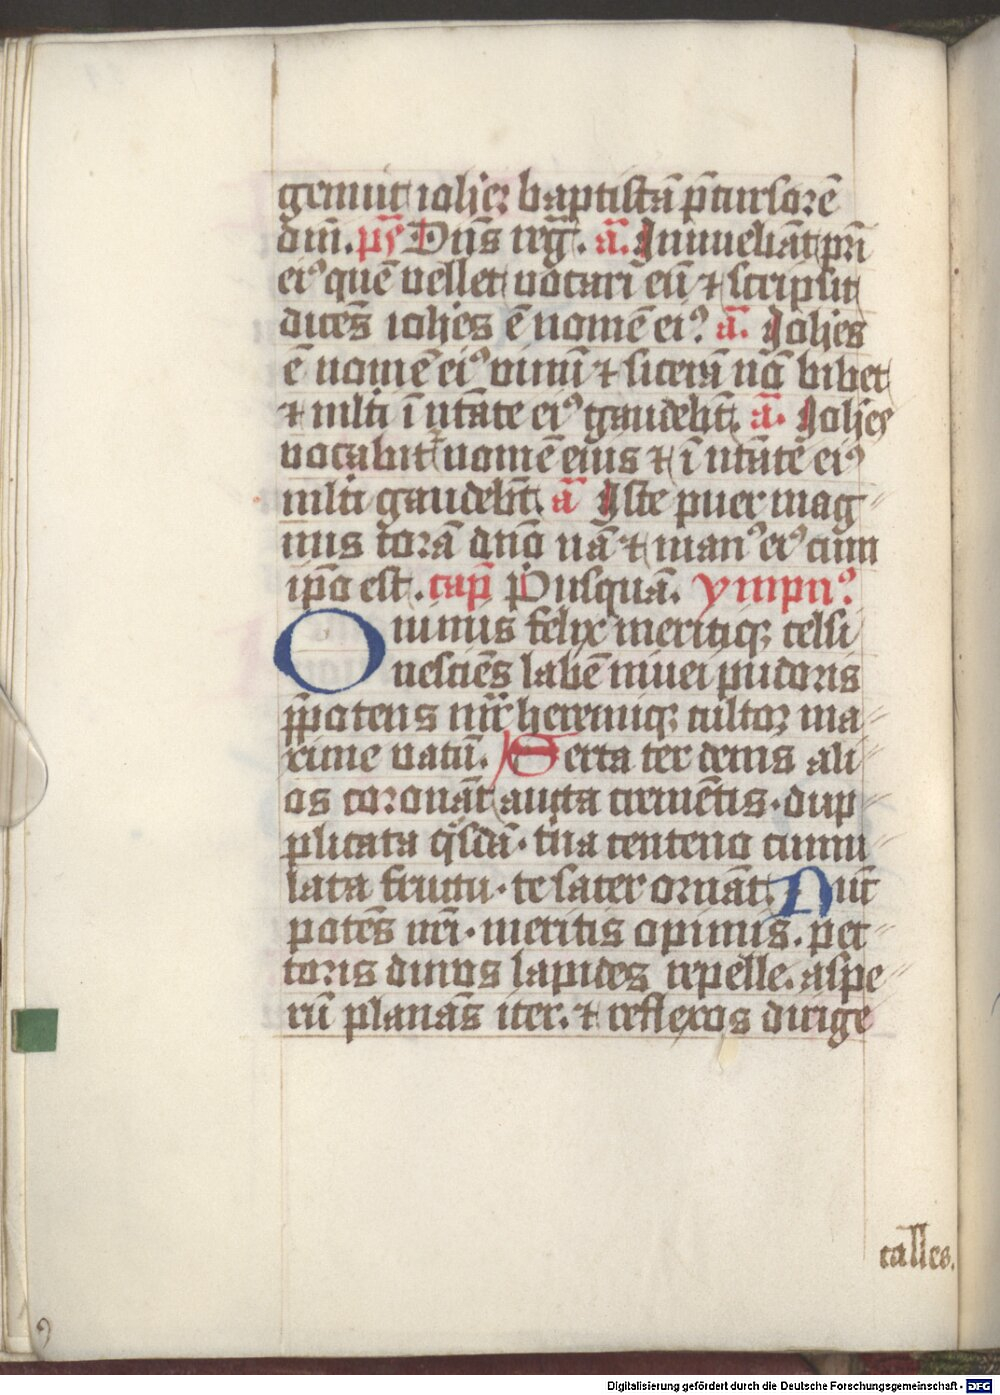 genuit iohēz baptistā p̄cursorē
dn̄i. ps̄ Dn̄s reg̅. an̄. Innuebāt pr̄i
eiꝰ quē vellet vocari eū ⁊ scripsit
dicēs iohēs ē nomē eiꝰ an̄. Iohēs
ē nomē eiꝰ vinū ⁊ sicerā nō bibet
⁊ ml̄ti ī nt̄āte eiꝰ gaudebt̄. an̄. Iohēs
vocabit̄ nomē eius ⁊ ī nt̄āte eiꝰ
ml̄ti gaudebt̄. an̄ Iste puer mag
nus corā dn̄o nā ⁊ manꝰ eiꝰ cum
ip̄o est. cap̄ Priusquā. ympnꝰ
O nimis felix meritiqꝫ celsi
nesciēs labē niuei pudoris
p̄potens mr̄ heremiqꝫ cultoꝝ ma
xime vatū. Serta ter denis ali
os coronāt aucta cremētis. dup
plicata q̄sdā. tua centeno cumu
lata fructu. te sacer ornāt. Nūc
potēs nr̄i. meritis opimis. pec
toris duros lapides repelle. aspe
rū planās iter. ⁊ reflexos dirige
calles.
Digitalisierung gefördert durch die Deutsche Forschungsgemeinschaft - DFG